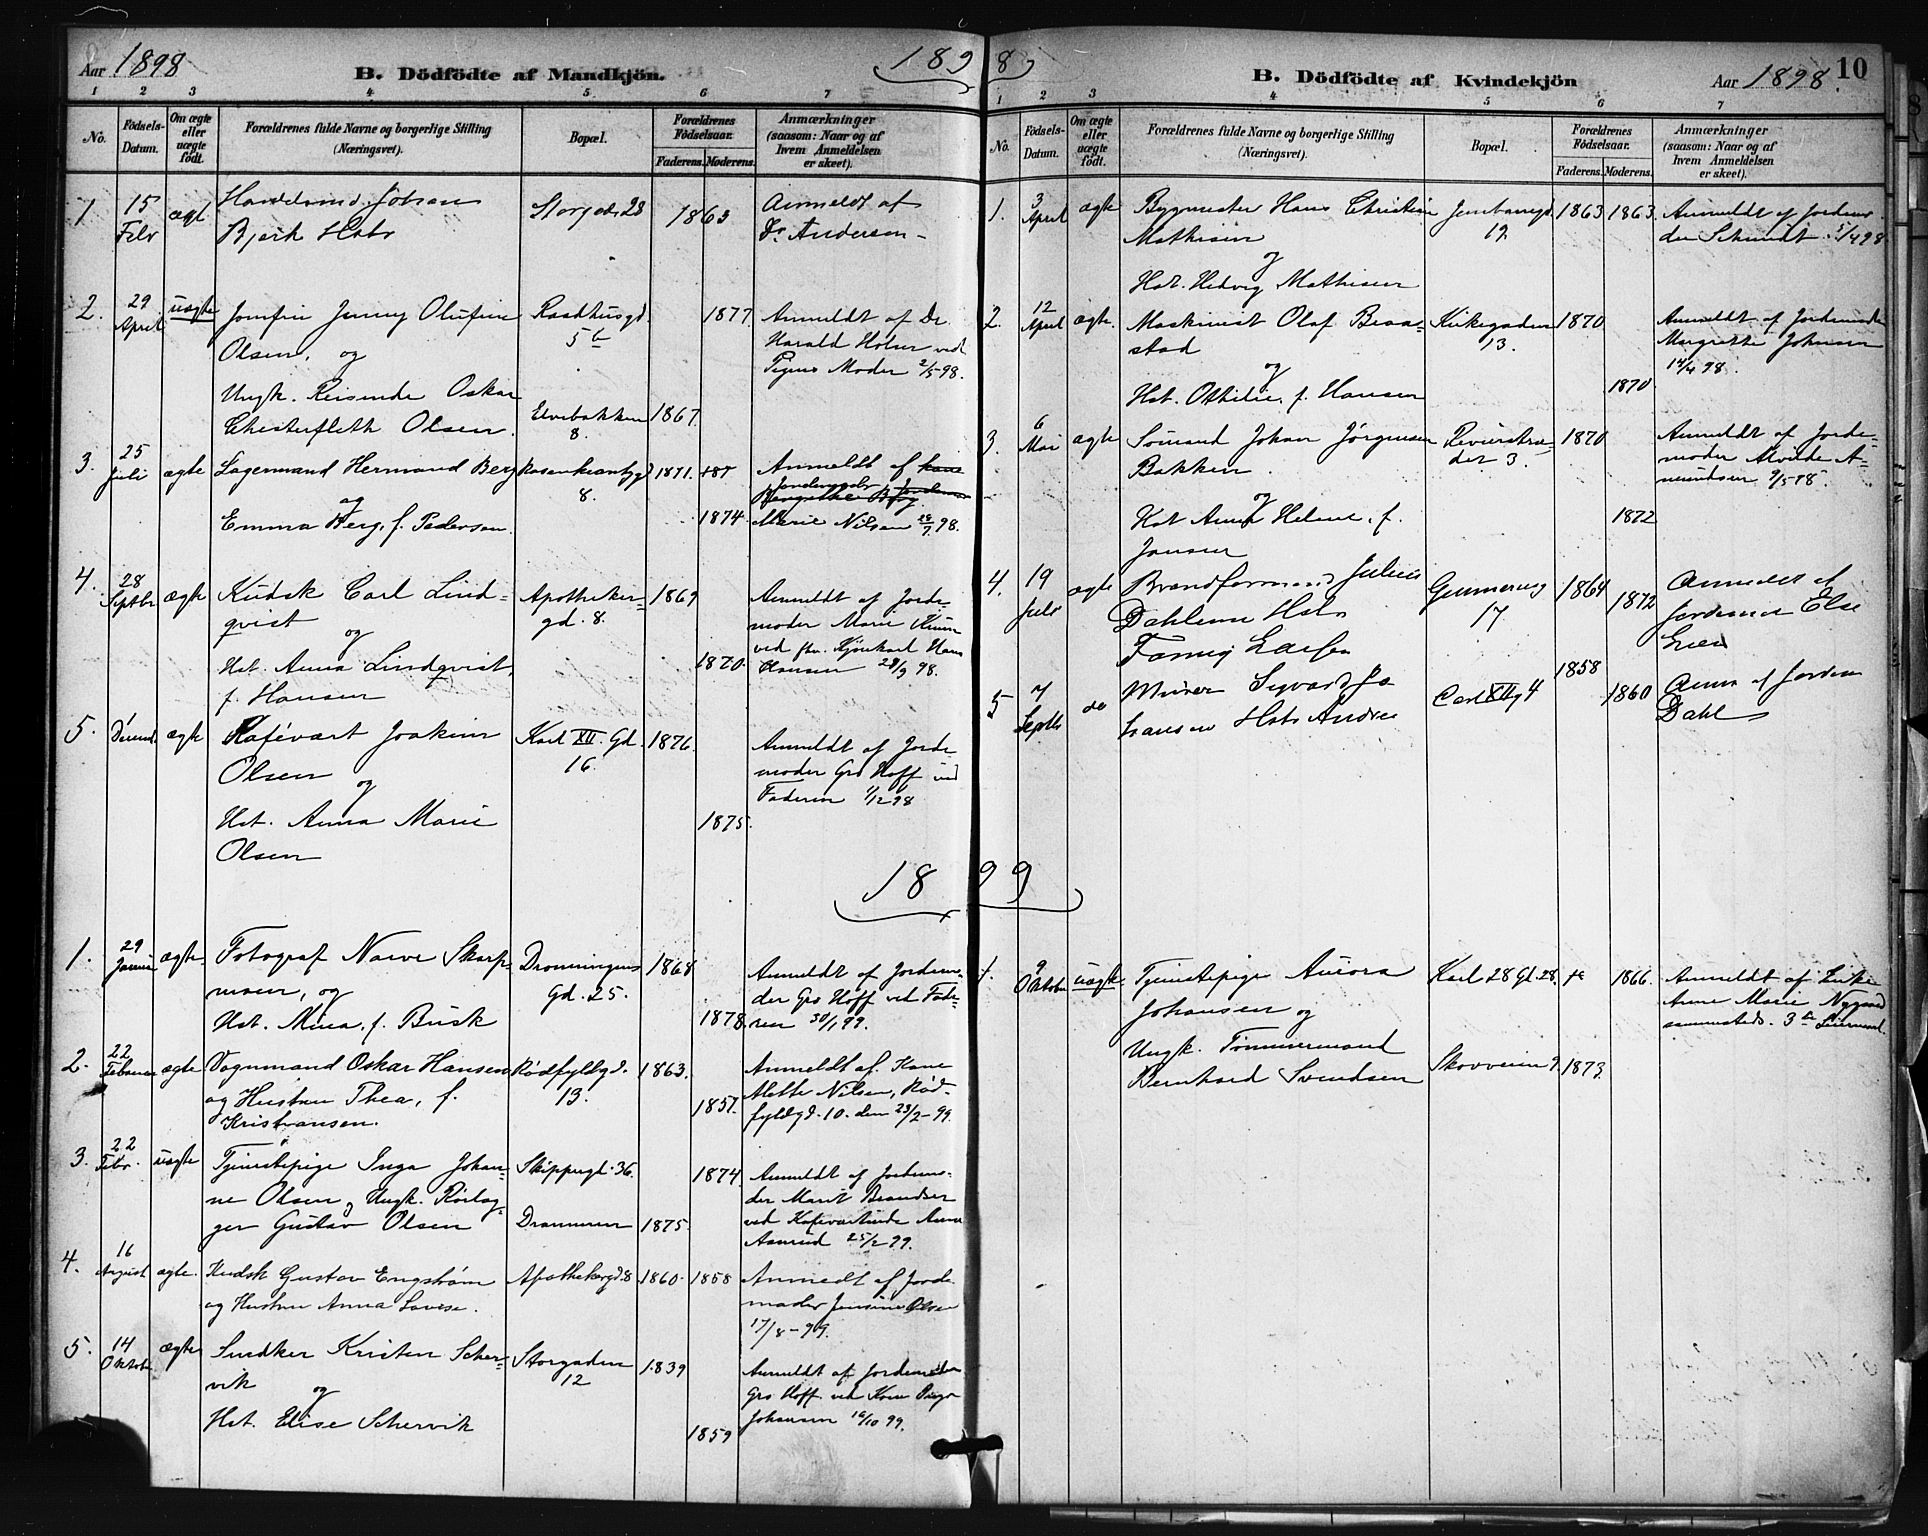 Aar 1898
B. Dödfödte af Mandkjön.
189
1
2
3
4
5
6
7
No.
Födsels-
Datum.
Om ægte
eller
uægte
födt.
Forældrenes fulde Navne og borgerlige Stilling
(Næringsvei).
Bopæl.
Forældrenes
Födselsaar.
Faderens.
Moderens.
Anmærkninger
(saasom: Naar og af
hvem Anmeldelsen
er skeet).
1
15
Febr
ægt
Johan
Bjerk Hstr
Storgd. 28
1863
Anmeldt af
Dr Andersen
2.
29
April
uægte
Jomfru Jenny Olufine
Olsen, og
Ungk. Reisende Oskar
Chesterfleth Olsen.
Raadhusgd.
5b
Elvebakken
8.
1867.
1877.
Anmeldt af Dr.
Harald Holm ved
Pigens Moder 2/5 98.
3.
25
Juli
ægte
Lagermand Hermand Berg
og
Emma Berg, f. Pedersen.
Rosenkrantzgd
8.
1871.
1874.
Anmeldt af
Marie Nilsen 28/7 98.
4.
28
Septbr
ægte
Kudsk Carl Lind-
qvist
og
Hst. Anna Lindqvist,
f. Hansen
Apotheker-
gd. 8.
1869
1870.
Anmeldt af Jorde-
moder Marie
ved Hans
Hansen 28/9 98.
5.
ægte
Kafévært Joakim
Olsen
og
Hst. Anna Marie
Olsen
Karl XII. Gd.
16.
1876.
1875.
Anmeldt af Jorde
moder Gro Hoff ved
Faderen 1/12 98
18
1.
29
Januar
ægte
Fotograf Narve Skarp-
moen, og
Hst. Mina, f. Busk
Dronningens
Gd. 25.
1868
1878.
Anmeldt af Jordemo-
der Gro Hoff ved Fade-
ren 30/1 99.
2.
22
Februar
ægte
Vognmand Oskar Hansen
og Hustru Thea, f.
Kristiansen.
Rødfyldgd.
13.
1863.
1857.
Anmeldt af Kone
Mette Nilsen, Rød-
fyldgd. 10. den 23/2 - 99.
3.
22
Febr.
uægte
Tjenestepige Inga Johan-
ne Olsen og Ungk. Rørlæg-
ger Gustav Olsen
Skippergd. 36.
Drammen
1875.
1874
Anmeldt af Jordemo-
der Marit Brandser
ved Kafevertinde Anna
Aamrud 25/2 99.
4.
16
August
ægte.
Kudsk Gustav Engstrøm
og Hustru Anna Lovise.
Apothekergd. 8
1860.
1858
Anmeldt af Jorde
moder Jensine Olsen
17/8 - 99.
5.
14
Oktob
ægte
Snedker Kristen Scher-
vik
og
Hst. Elise Schervik
Storgaden
12
1839
1859
Anmeldt af Jordemoder
Gro Hoff ved Kone
Johansen 16/10 99.
8
B. Dödfödte af Kvindekjön
Aar 1898.
10
1
2
3
4
5
6
7
No.
Födsels-
Datum.
Om ægte
eller
uægte
födt.
Forældrenes fulde Navne og borgerlige Stilling
(Næringsvei).
Bopæl.
Forældrenes
Födselsaar.
Faderens.
Moderens.
Anmærkninger
(saasom: Naar og af
hvem Anmeldelsen
er skeet).
1.
3
April
ægte
Bygmester Hans Christian
Mathisen
og
Hst. Hedvig Mathisen
Jernbanegd
19.
1863
1863.
Anmeldt af Jordemo-
der Schmidt 5/4 98
2.
12
April
ægte.
Maskinist Olaf Braa-
stad
og
Hst. Othilie, f. Hansen
Kirkegaden
13.
1870
1870
Anmeldt af Jordemoder
Margrethe Johnsen
14/4 98.
3.
6
Mai
ægte
Sömand Johan Jørgensen
Bakken.
og
Hst Anna Helene, f.
Jansen
Revierstræ-
det 3.
1870
1872
Anmeldt af Jorde-
moder Alvilde A-
mundsen 9/5 98.
4.
19
Juli
ægte
Brandformand Julius
Dahlenn Hstr
Fanny Larsen
17
1864
1872
Anmeldt af
Jordemor Else
5
7
Septbr
do
Murer Sigvard
Hansen Hstr Andrea
Carl XII g 4
1858
1860
Anm af Jordem
Dahl
99
1.
9
Oktober
uægte
Tjenestepige Aurora
Johansen og
Ungk. Tömmermand
Bernhard Svendsen
Karl 28 Gd. 28.
Skovveien 9.
1873.
1866.
Anmeldt af Enke
Anne Marie Nygaard
sammesteds. 3die Leiermaal.